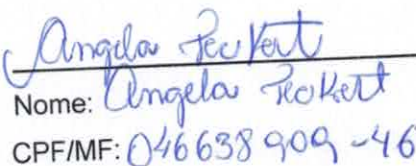 Angela Peckert
Nome: Angela Peckert
CPF/MF: 046638909-46